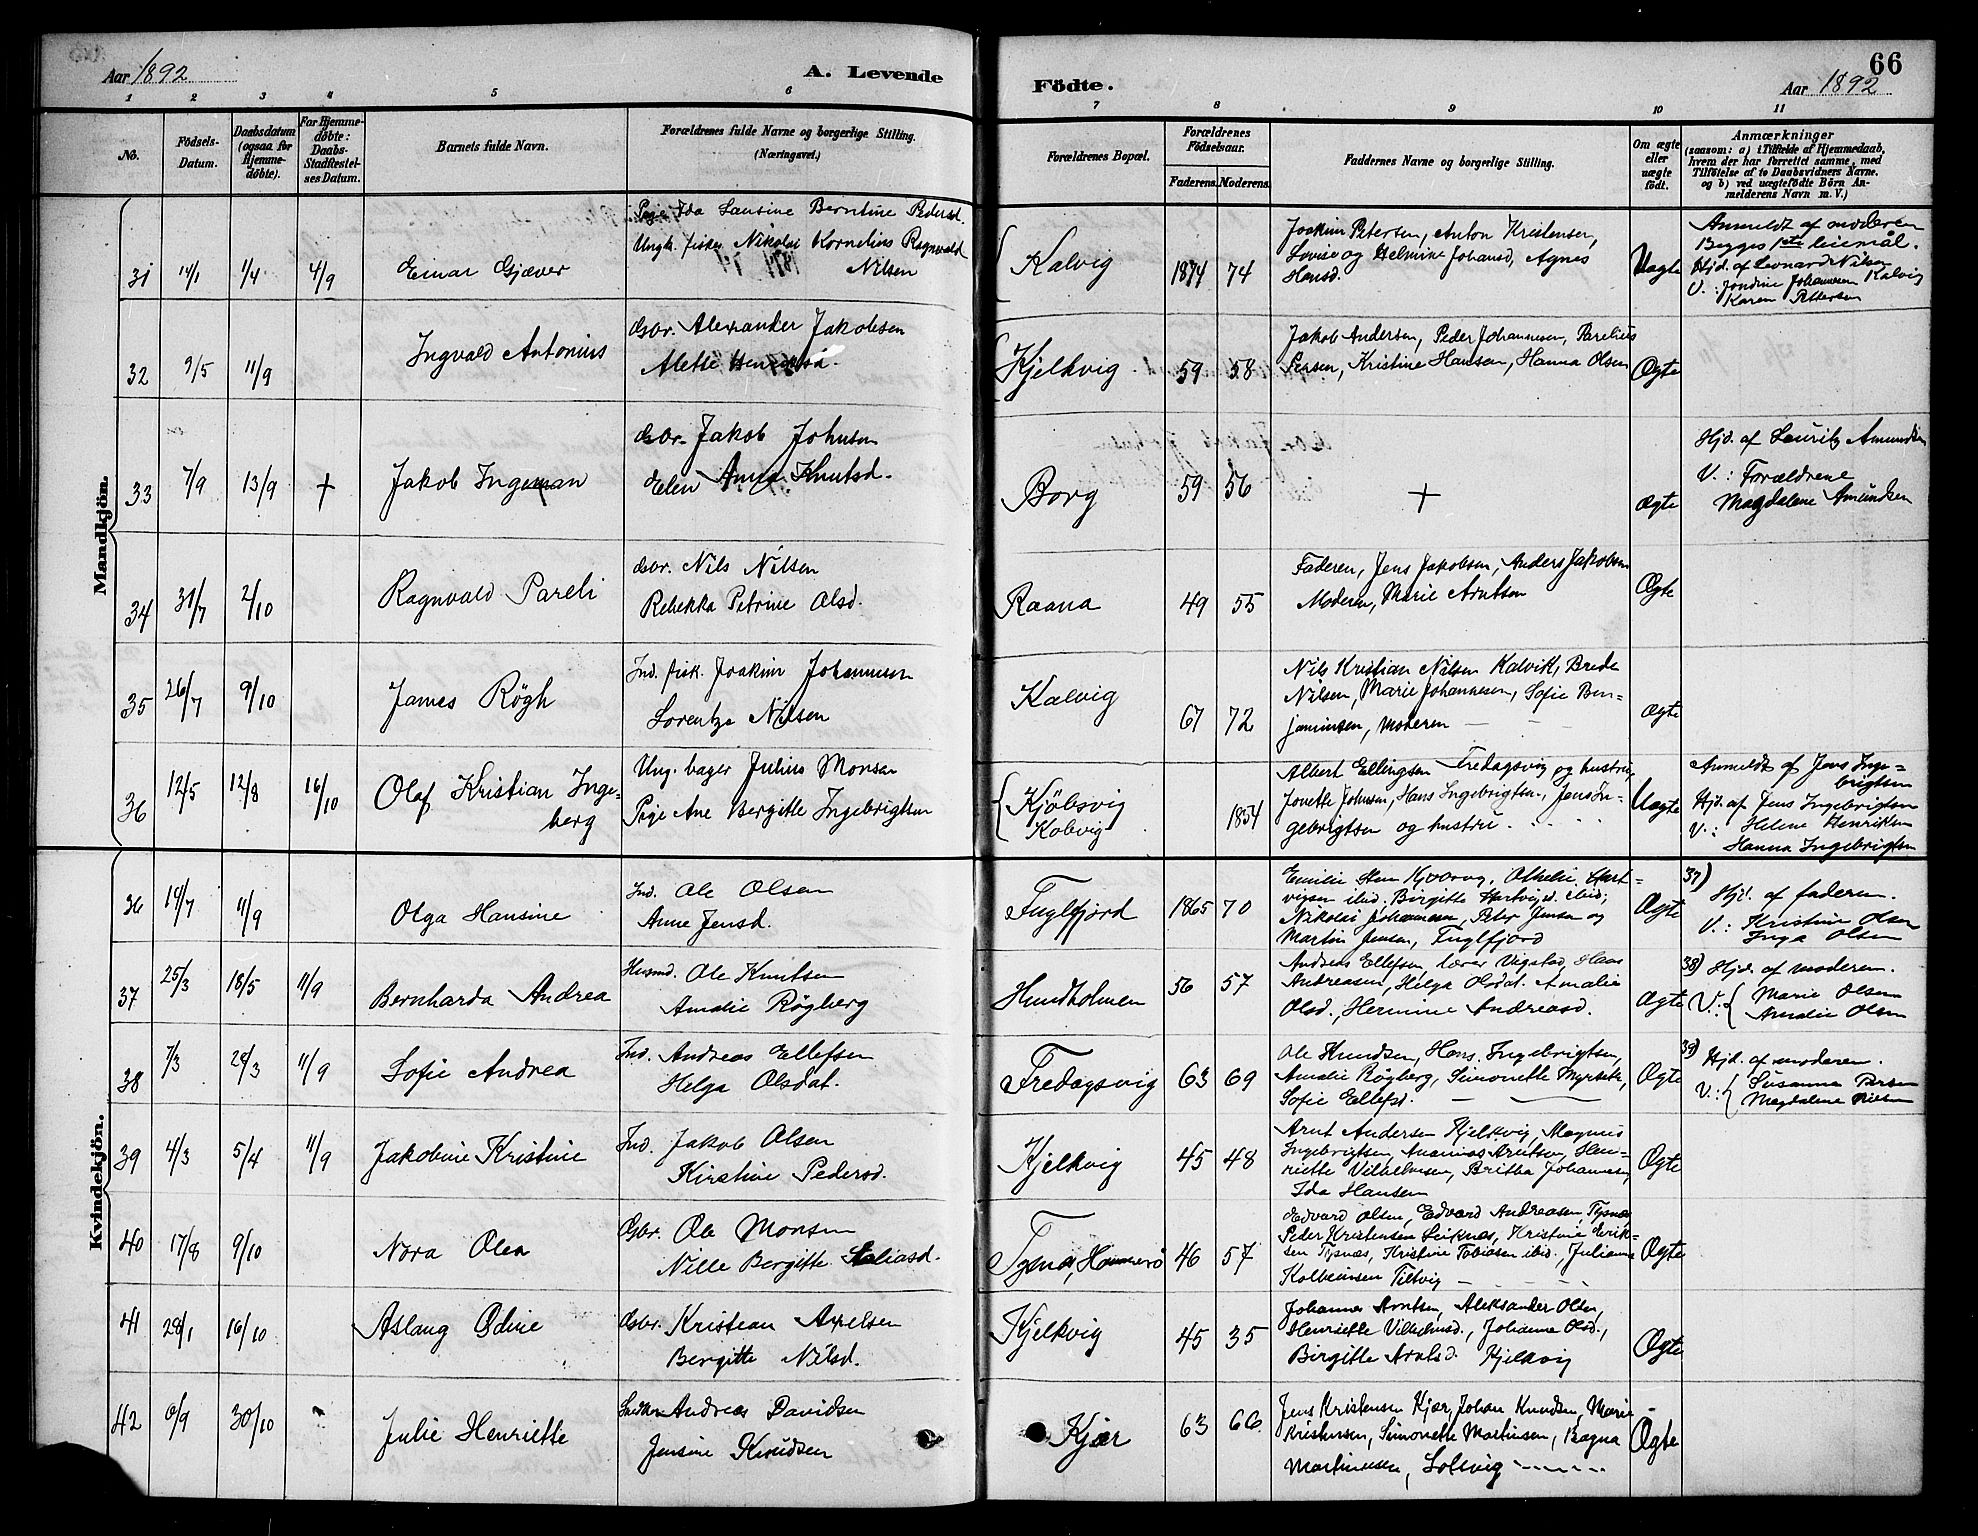 Aar 1892
A. Levende
Födte.
66
Aar 1892
1 2 3 4 5 6 7 8 9 10 11
No.
Födsels-
Datum.
Daabsdatum
(ogsaa for
Hjemme-
döbte).
For Hjemme-
döbte:
Daabs-
Stadfæstel-
ses Datum.
Barnets fulde Navn.
Forældrenes fulde Navne og borgerlige Stilling.
(Næringsvei.)
Forældrenes Bopæl.
Forældrenes
Födselsaar.
Faderens. Moderens.
Faddernes Navne og borgerlige Stilling.
Om ægte
eller
uægte
födt.
Anmærkninger
(saasom: a) i Tilfælde af Hjemmedaab,
hvem der har forrettet samme, med
Tilföielse af to Daabsvidners Navne.
og b) ved uægtefödte Börn An-
melderens Navn m. V.)
Mandkjön.
31 14/1 1/4 4/9 Einar Gjæver
Pige Ida Lausine Berntine Pedersd.
Ungk. fisker Nikolai Kornelius Ragnvald
Nilsen
Kalvig 1874 74
Joakim Petersen, Anton Kristensen,
Lovise og Helmine Johansd, Agnes
Hansd.
Uægte
Anmeldt af moderen
Begges 1ste leiemål.
Hjd. af Leonard Nilsen
V.: Jondine Johannesen Kalvig
Karen Pettersen
32 9/5 11/9 Ingvald Antonius
Gbr. Alexander Jakobsen
Alette Henriksd.
Kjelkvig 59 58
Jakob Andersen, Peder Johannesen, Parelius
Persen, Kristine Hansen, Hanna Olsen
Ægte
33 7/9 13/9 + Jakob Ingeman
Gbr. Jakob Johnsen
Elen Anna Knutsd.
Borg 59 56
+
Ægte
Hjd. af Lauritz Amundsen
V.: Forældrene
Magdalene Amundsen
34 31/7 2/10 Ragnvald Pareli
Gbr. Nils Nilsen
Rebekka Petrine Olsd.
Raana 49 55
Faderen, Jens Jakobsen, Anders Jakobsen
Moderen, Marie Arntsen
Ægte
35 26/7 9/10 James Rögh
Ind. fisk. Joakim Johannesen
Lorentze Nilsen
Kalvig 67 72
Nils Kristian Nilsen Kalvik, Brede
Nilsen, Marie Johannesen, Sofie Ben-
jaminsen, Moderen
Ægte
36 12/5 12/8 16/10 Olaf Kristian Inge-
berg
Ung. bager Julius Monsen
Pige Ane Bergitte Ingebrigtsen
Kjöbsvig
Kobvig 1854
Albert Ellingsen Fredagsvig og hustru
Jonette Johnsen, Hans Ingebrigtsen, Jens In-
gebrigtsen og hustru
Uægte
Anmeldt af Jens Inge-
brigtsen
Hjd. af Jens Ingebrigtsen
V.: Helene Henriksen
Hanna Ingebrigtsen
Kvindekjön.
36 14/7 11/9 Olga Hansine
Ind. Ole Olsen
Anne Jensd.
Fuglfjord 1865 70
Emilie Sten Kjvarvg, Othelie Hart-
vigsen ibid, Birgitte Hartvigsd. ibid;
Nikolai Johannesen, Peter Jensen og
Martin Jensen, Fuglfjord
Ægte
37) Hjd. af faderen.
V.: Kristine Olsen
Inga Olsen
37 25/3 18/5 11/9 Bernharda Andrea
Husmd. Ole Knutsen
Amalie Rögberg
Hundholmen 56 57
Andreas Ellefsen, lærer Vigstad, Hans
Andreasen, Helga Olsdat. Amalie
Olsd., Hermine Andreasd.
Ægte
38) Hjd. af moderen.
V.: Marie Olsen
Amalie Olsen
38 7/3 28/3 11/9 Sofie Andrea
Ind. Andreas Ellefsen
Helga Olsdat.
Fredagsvig 63 69
Ole Knudsen, Hans Ingebrigtsen,
Amalie Rögberg, Simonette Myrseth,
Sofie Ellefsd.
Ægte
39) Hjd. af moderen.
V.: Susanna Persen
Magdalene Nilsen
39 4/3 5/4 11/9 Jakobine Kristine
Ind. Jakob Olsen
Kirstine Pedersd.
Kjelkvig 45 48
Arnt Andersen Kjelkvig, Magnus
Ingebrigtsen, Ananias Arntsen, Hen-
riette Vilhelmsen, Britha Johannesen,
Ida Hansen
Ægte
40 17/8 9/10 Nora Olea
Gbr. Ole Monsen
Nille Bergitte Eliasd.
Tysnæs, Hammerö 46 57
Edvard Olsen, Edvard Andreasen Tysnæs
Peder Kristensen Leiknæs, Kristine Erik-
sen Tysnæs, Kristine Tobiasen ibid, Julianna
Kolbeinsen Tiltvig
Ægte
41 28/1 16/10 Aslaug Odine
Gbr. Kristian Axelsen
Bergitte Nilsd.
Kjelkvig 45 35
Johannes Arntsen, Aleksander Olsen,
Henriette Vilhelmsd., Johanna Olsd.,
Birgitte Arntsd. Kjelkvig
Ægte
42 6/9 30/10 Julie Henriette
Snedker Andreas Davidsen
Jensine Knudsen
Kjær 63 66.
Jens Kristensen Kjær, Johan Knudsen, Marie
Kristensen, Simonette Martinsen, Ragna
Martinesen, Sollvig
Ægte